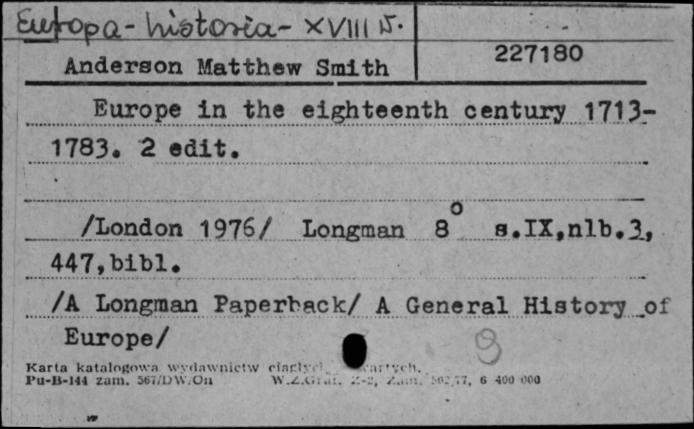 Europa - historia - XVIII w.
Anderson Matthew Smith
227180
Europe in the eighteenth century 1713-
1783. 2 edit.
/London 1976/ Longman 8° s.IX,nlb.3,
447,bibl.
/A Longman Paperback/ A General History of
Europe/
9
Karta katalogowa wydawnictw
Pu-B-144 zam. 567/DW/On W.Z.Graf. Z-2, Zam. 502/77, 6 400 000